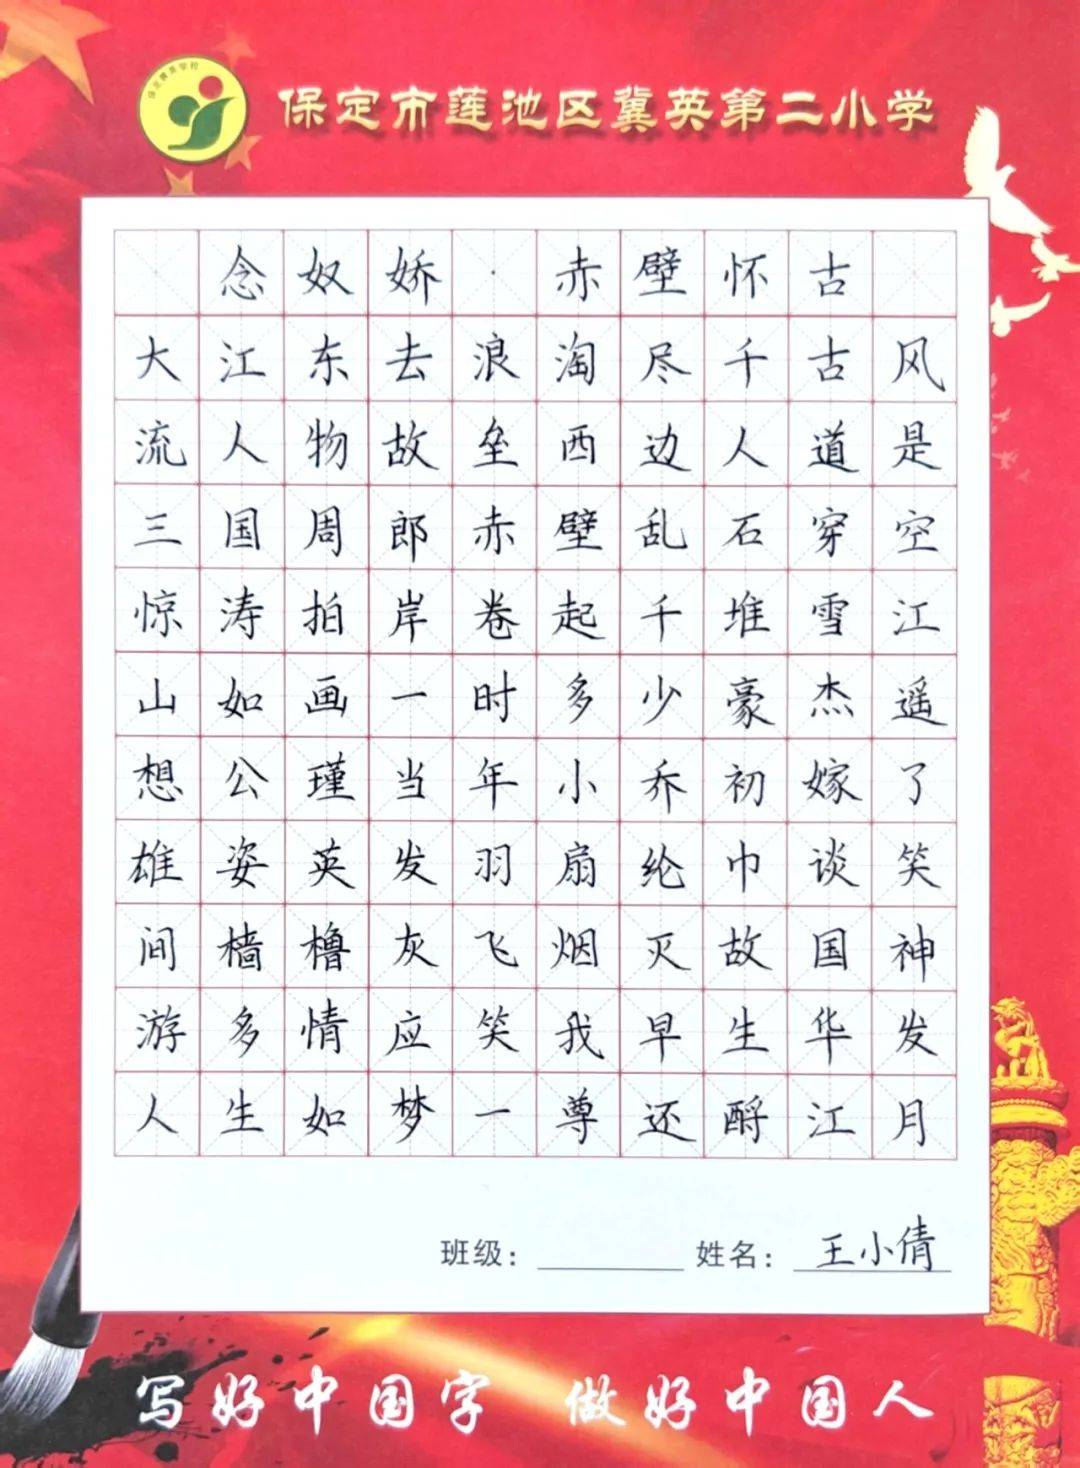 保定冀英学校
保定市莲池区冀英第二小学
念奴娇·赤壁怀古
大江东去浪淘尽千古风
流人物故垒西边人道是
三国周郎赤壁乱石穿空
惊涛拍岸卷起千堆雪江
山如画一时多少豪杰遥
想公瑾当年小乔初嫁了
雄姿英发羽扇纶巾谈笑
间樯橹灰飞烟灭故国神
游多情应笑我早生华发
人生如梦一尊还酹江月
班级： 姓名：王小倩
写好中国字 做好中国人